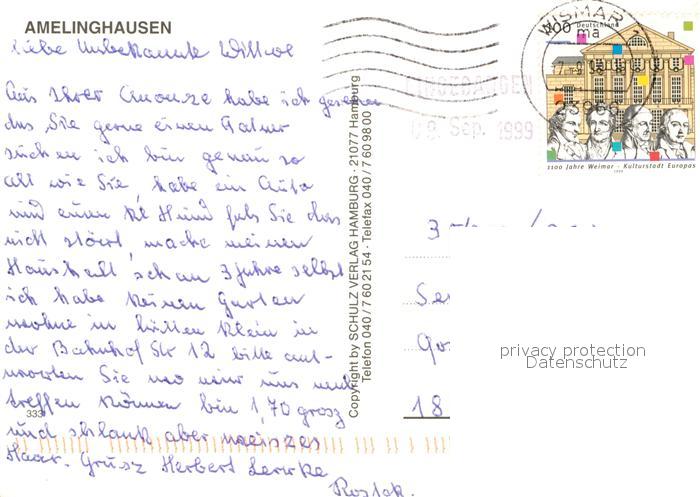 AMELINGHAUSEN
Liebe Unbekannte Witwe
Aus Ihrer Anonze habe ich gelesen
das Sie gerne einen Partner
suchen ich bin genau so
alt wie Sie, habe ein Auto
und einen kl Hund fals Sie das
nicht stört, mache meinen
Haushalt schon 3 Jahre selbst
ich habe keinen Garten
wohne in Lütten Klein in
der Bahnhof Str 12 bitte ant-
worten Sie wo wir uns mal
treffen können bin 1,70 grosz
und schlank aber weiszes
Haar. Grusz Herbert
Rostok.
333
Copyright by SCHULZ VERLAG HAMBURG · 21077 Hamburg
Telefon 040 / 7 60 21 54 · Telefax 040 / 7 60 98 00
WISMAR 1
23966
EINGEGANGEN
Sep. 1999
100 Deutschland
1100 Jahre Weimar - Kulturstadt Europas
1999
18
privacy protection
Datenschutz